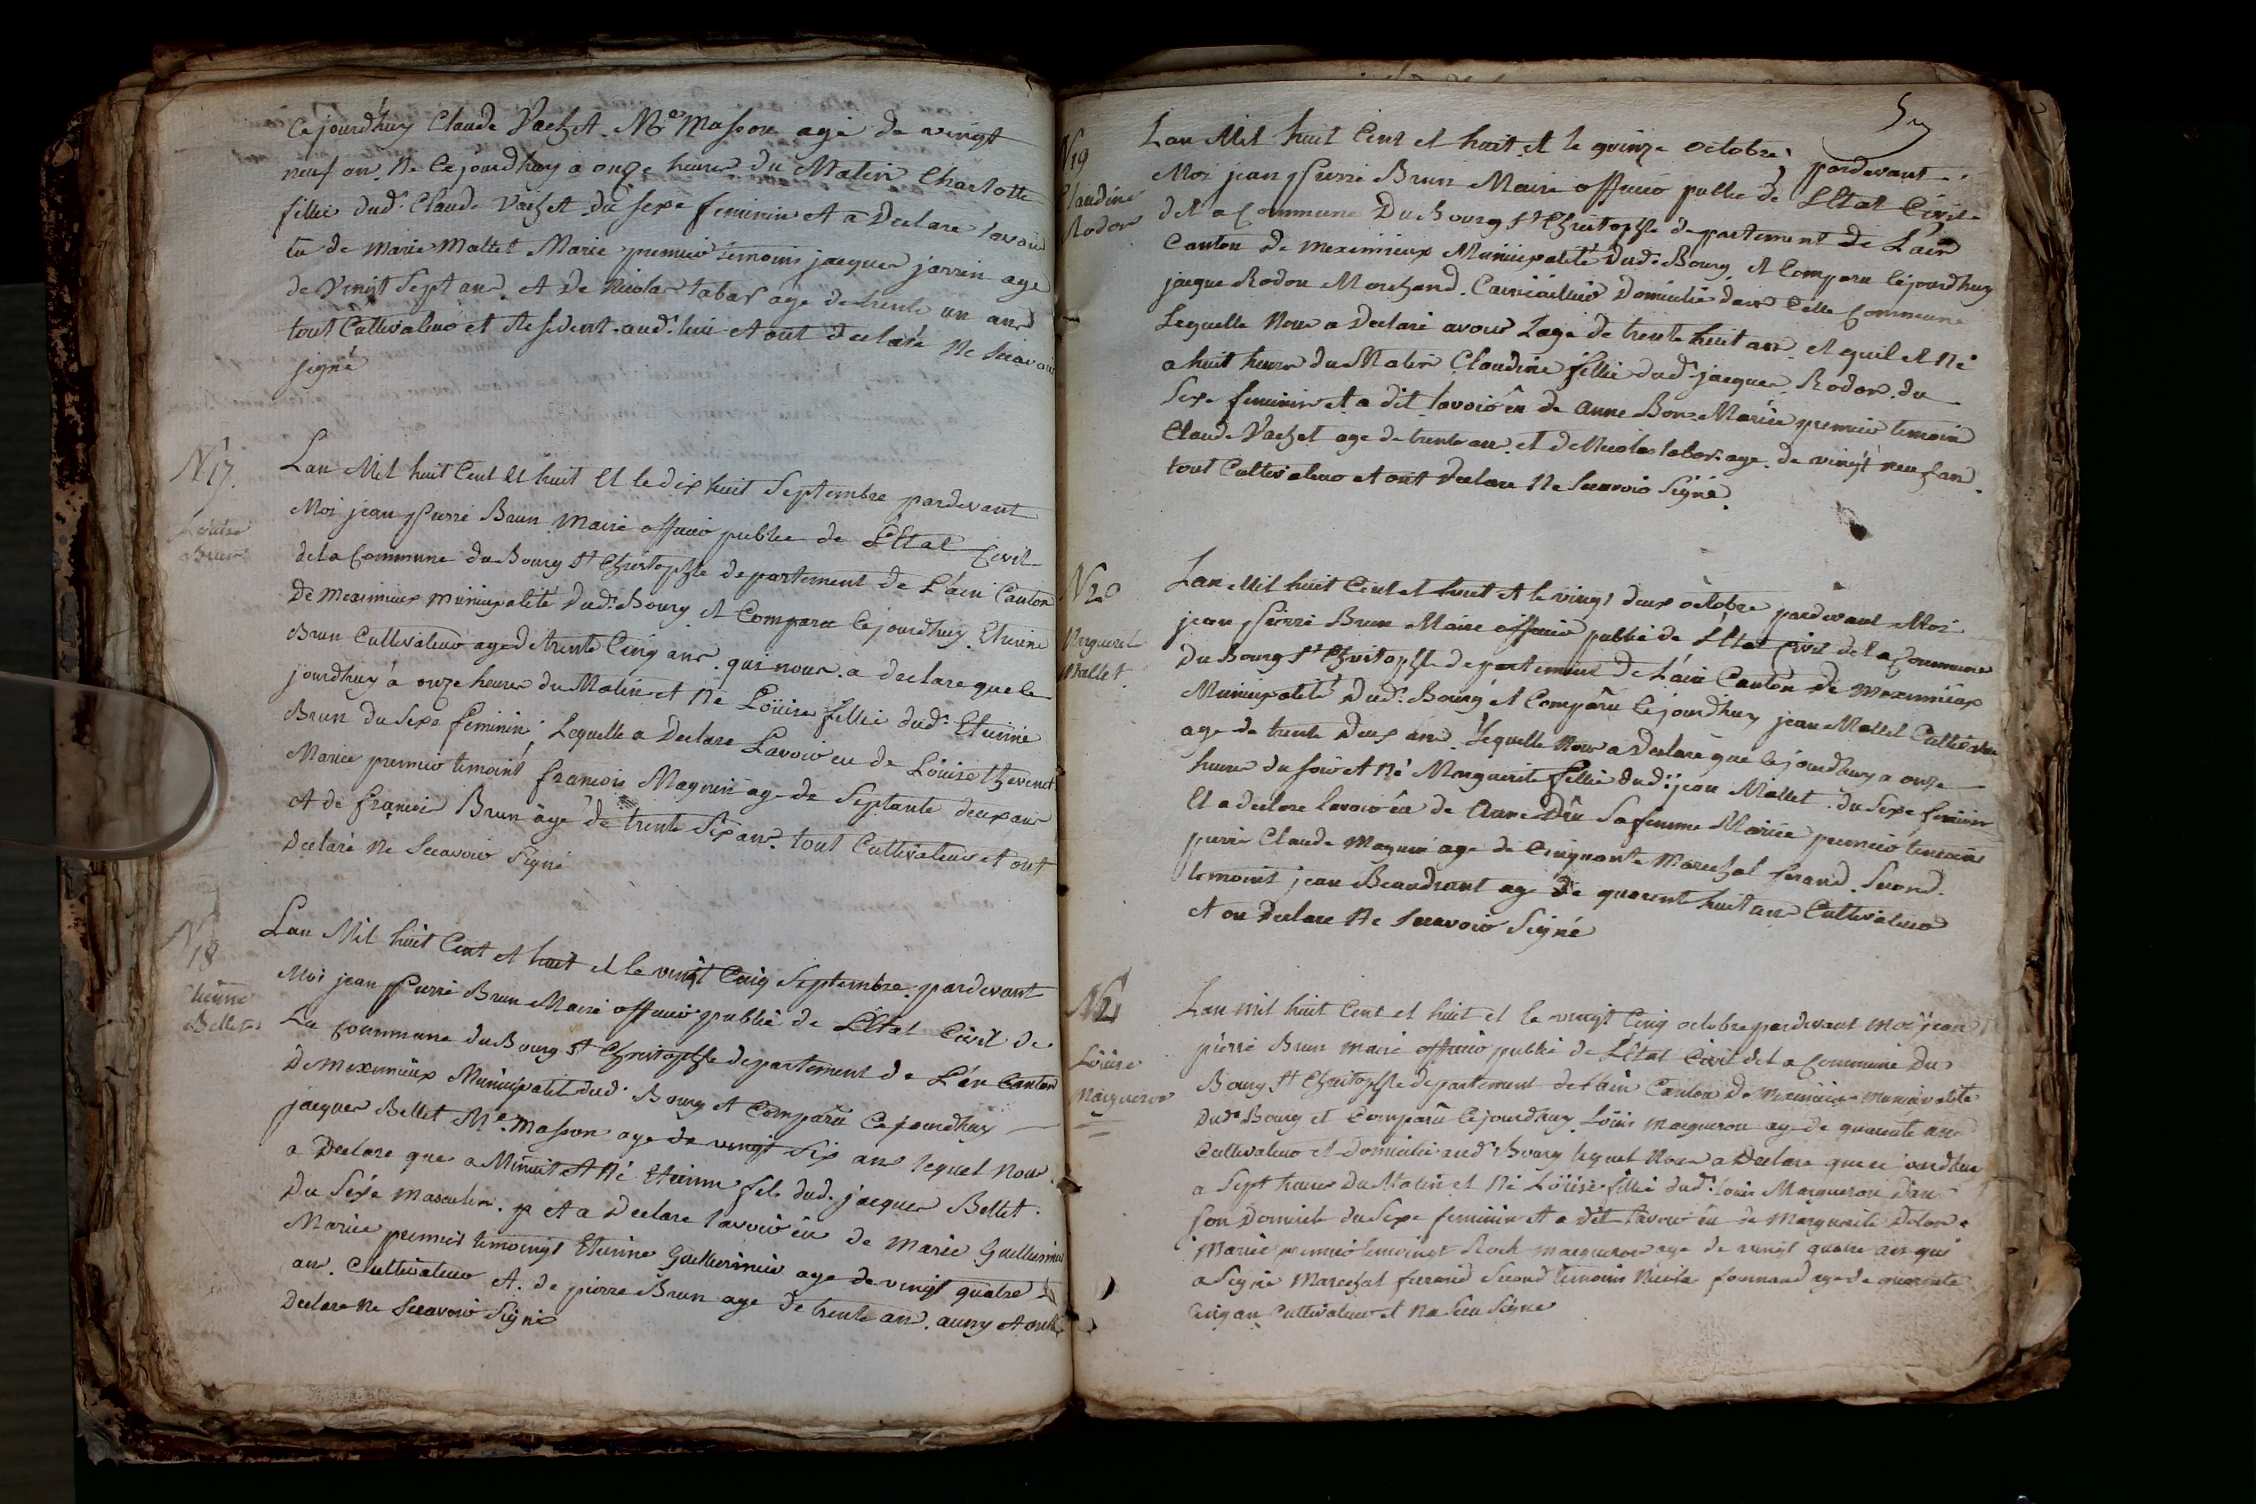 Cejourdhuy Claude Vachet Me Masson agé de vingt
neuf an. Ne Cejourdhuy a onze heures du Matin Charlotte
fillie dud. Claude Vachet du sexe feminin et a Declare lavoir
eu de Marie Mallet Marie premier temoins jacques jarrin age
de Vingt Sept ans et De Nicolas tabar age de trente un ans
tout Cultivateur et Resident aud. lieu et ont declaré ne Scavoir
signé
N 17
Louise
Brun
Lan Mil huit Cent et huit et le dix huit Septembre pardevant
Moi jean Pierre Brun Maire officier public de LEtat Civil
de la Commune du Bourg St Christophle departement de L'ain Canton
De meximieux municipalité Dud. Bourg et Comparu Cejourdhuy Etienne
Brun Cultivateur age de trente Cinq ans qui nous a declare que le
jourdhuy a onze heures du Matin et Ne Loüise fillie dud. Etienne
Brun du Sexe feminin Lequelle a Declare Lavoir eu de Loüise thevenet
Mariée premier temoint francois Magnin age de Septante deux ans
et de francoi Brun age de trente Six ans tout Cultivateur et ont
Declaré ne Scavoir Signé
N 18
Etienne
Bellet
Lan Mil huit Cent et huit et le vingt Cinq Septembre pardevant
Moi jean Pierre Brun Maire officier public de LEtat Civil de
La Commune du Bourg St Christophle departement de L'ain Canton
De meximieux Municipalité dud. Bourg et Comparu Cejourdhuy
jacques Bellet Me Masson age de vingt Six ans lequel nous
a Declare que a Minuit et Né Etienne fils dud. jacques Bellet
Du Sexe masculin et a Declare lavoir eu de Marie Guillermin
Mariée premier temoingt Etienne Guillermin age de vingt quatre
an. Cultivateur et de pierre Brun age de trente an aussy et ont
Declare ne Scavoir Signé
N 19
Claudine
Rodon
Lan Mil huit Cent et huit et le quinze octobre pardevant
Moi jean Pierre Brun Maire officier public de LEtat Civil
de la Commune Du Bourg St Christophle departement de L'ain
Canton de meximieux Municipalité Dud. Bourg et Comparu Cejourdhuy
jacque Rodon Marchand Domicilié dans Cette Commune
Lequelle Nous a Declaré avoir Lage de trente huit ans et quil et Né
a huit heures du Matin Claudine fillie dud. jacques Rodon du
Sexe feminin et a dit lavoir eu de Anne Bon Mariée premier temoin
Claude Vachet age de trente an et de Nicolas tabar age de vingt neuf an
tout Cultivateur et ont Declare Ne Scavoir Signé
N 20
Marguerite
Mallet
Lan Mil huit Cent et huit et le vingt deux octobre pardevant Moi
jean Pierre Brun Maire officier public de LEtat Civil de la Commune
Du Bourg St Christophle departement de L'ain Canton de Meximieux
Municipalité Dud. Bourg et Comparu Cejourdhuy jean Mallet Cultivateur
age de trente Deux ans Lequelle Nous a Declare que Cejourdhuy a onze
heures du soir et Né Marguerite fillie dud. jean Mallet du Sexe feminin
Et a declare lavoir eu de Anne Dru Sa femme Mariée premier temoin
pierre Claude Magnin age de Cinquante Marechal ferand Second
temoint jean Beaudrant age De quarent huit ans Cultivateur
et on Declare Ne Scavoir Signé
N 21
Loüise
Margueron
Lan mil huit Cent et huit et le vingt Cinq octobre pardevant Moi jean
pierre Brun maire officier public de LEtat Civil de la Commune Du
Bourg St Christophle departement de lain Canton De Meximieux municipalité
Dud. Bourg et Comparu Cejourdhuy Loüis Margueron age de quarente ans
Cultivateur et Domicilié aud. Bourg lequel Nous a Declare que ce jourdhuy
a Sept heures Du Matin et Né Loüise fillie dud. Louis Margueron Dan
son Domicile du Sexe feminin et a dit lavoir eu de Marguerite
Mariée premier temoingt Roch margueron age de vingt quatre an qui
a Signé Marechal ferand Second temoin Nicolas age de quarente
Cinq an Cultivateur et na Scu Signe